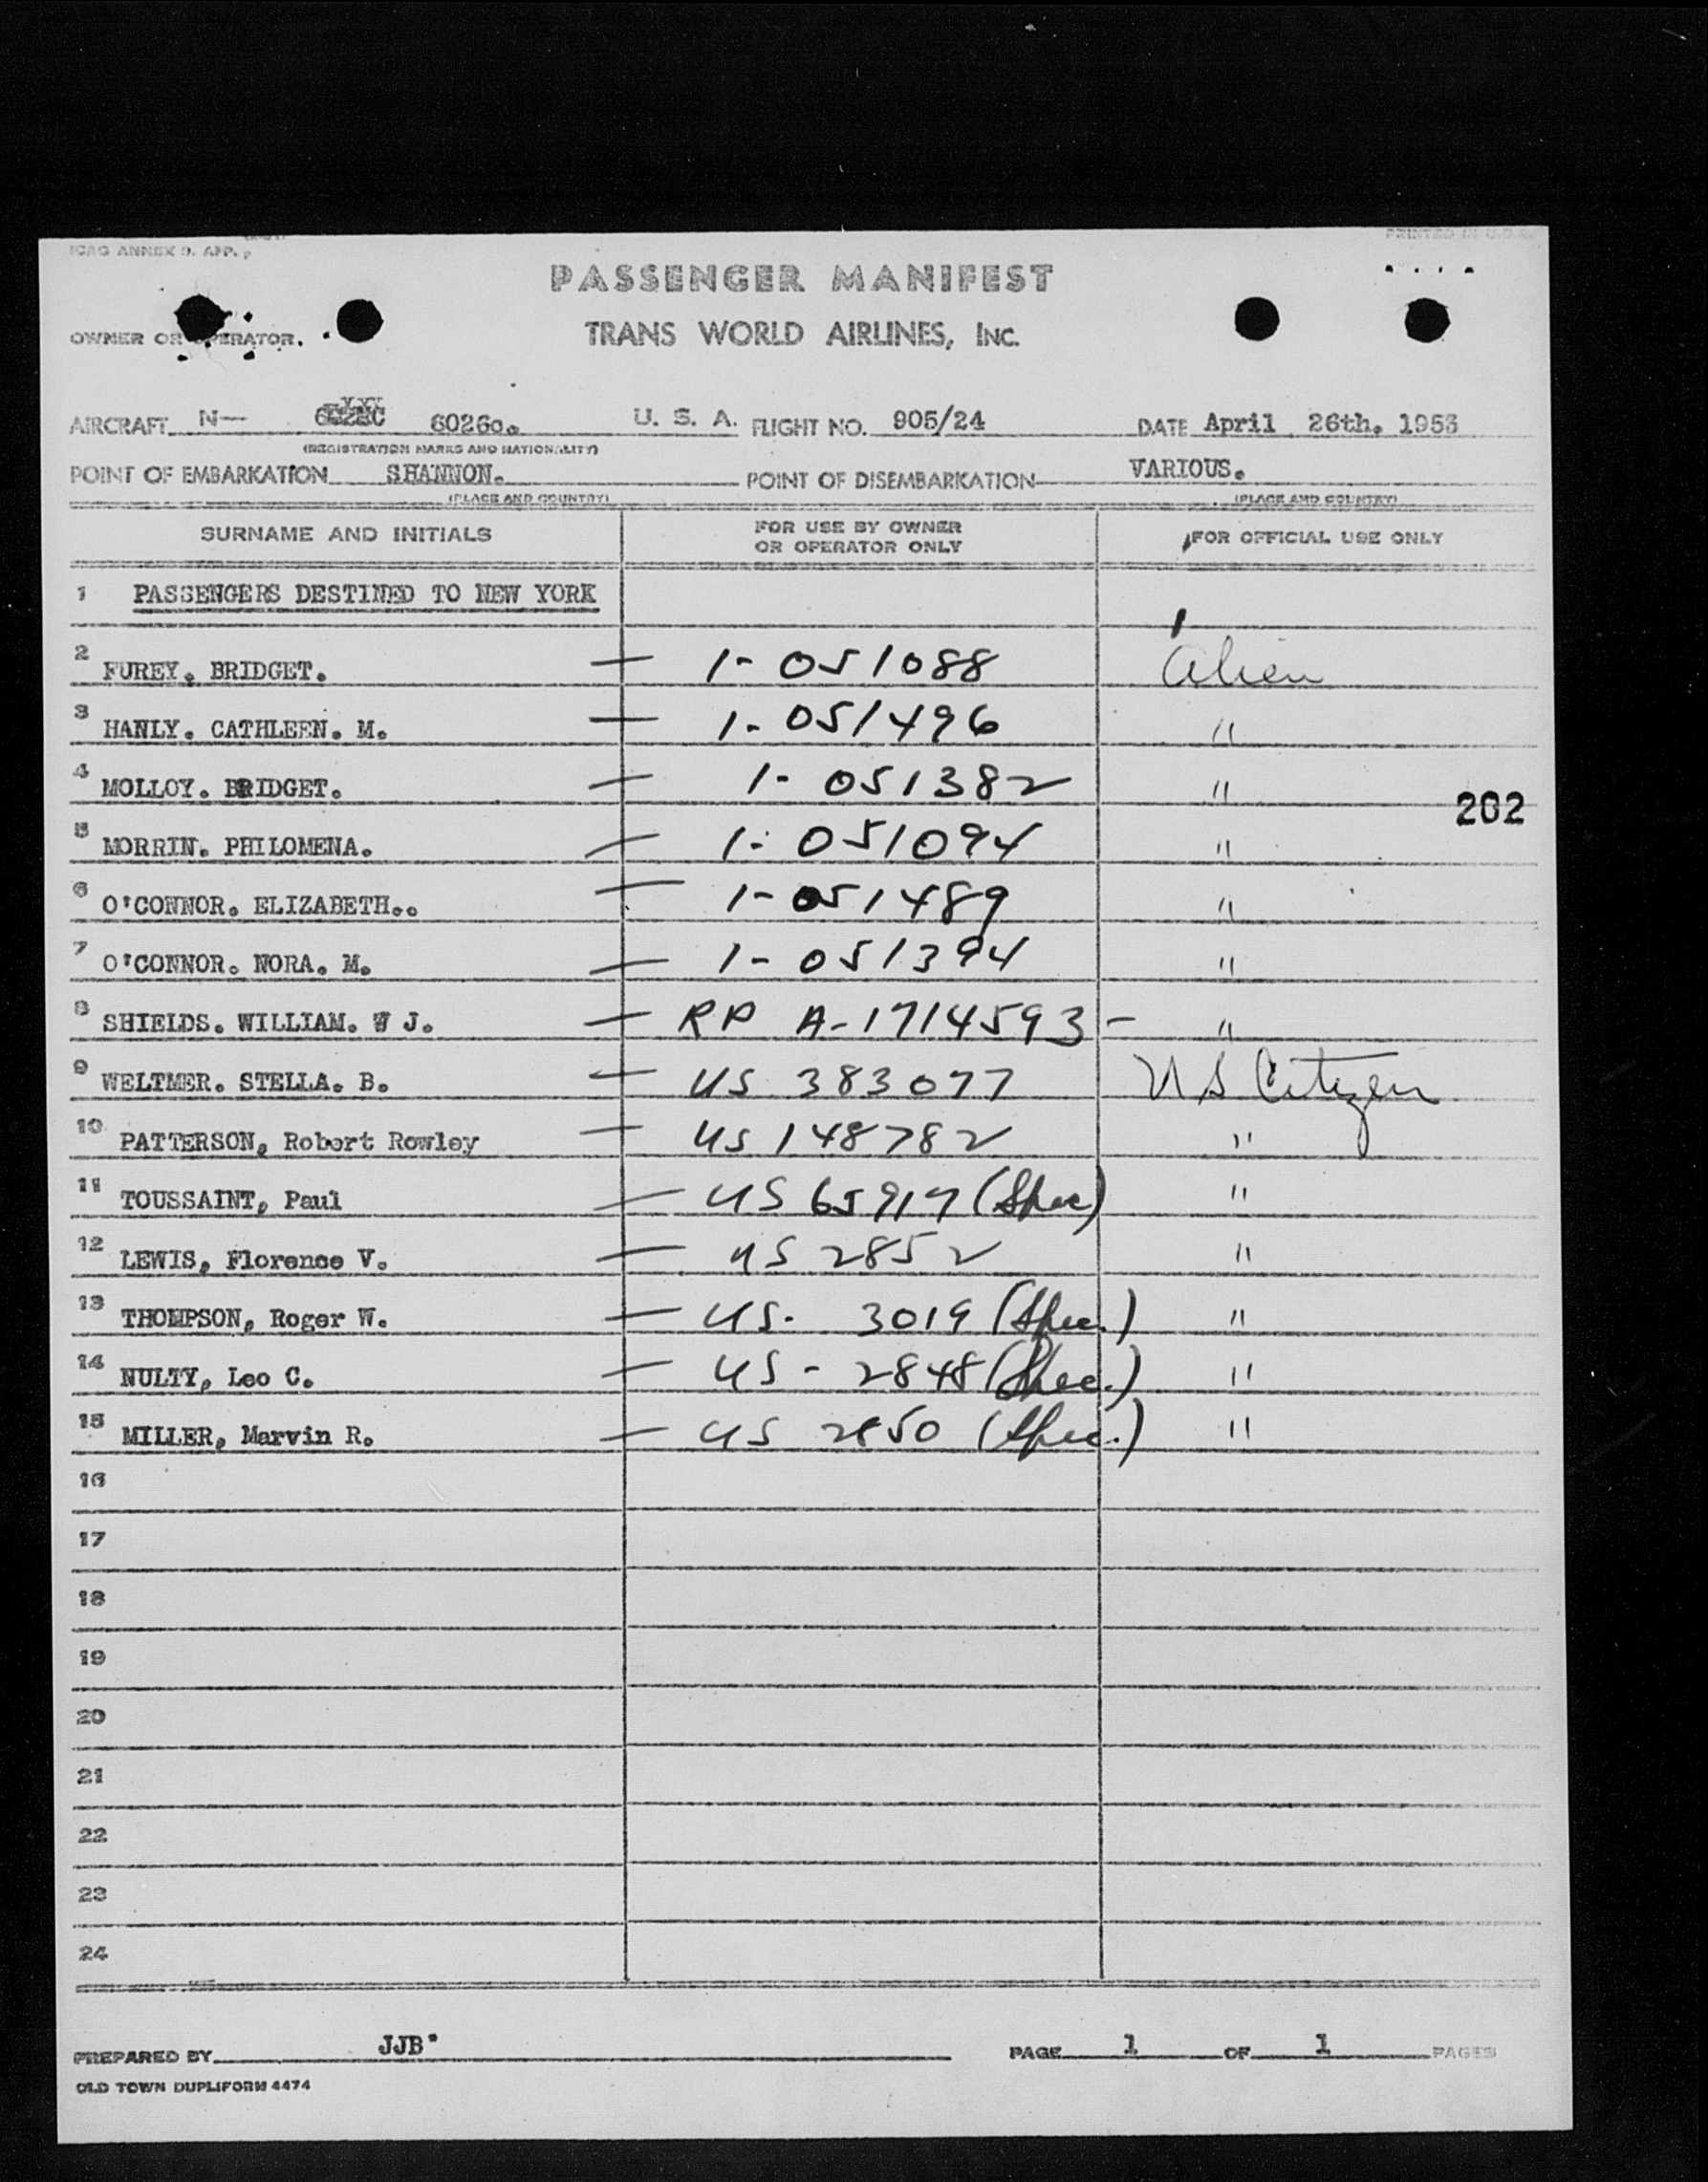 ICAO ANNEX 9. APP.
PRINTED IN U.S.A.
PASSENGER MANIFEST
OWNER OR OPERATOR. TRANS WORLD AIRLINES, INC.
AIRCRAFT N— 6026c. U. S. A. FLIGHT NO. 905/24 DATE April 26th. 1953
(REGISTRATION MARKS AND NATIONALITY)
POINT OF EMBARKATION SHANNON. POINT OF DISEMBARKATION VARIOUS.
(PLACE AND COUNTRY) (PLACE AND COUNTRY)
SURNAME AND INITIALS FOR USE BY OWNER OR OPERATOR ONLY FOR OFFICIAL USE ONLY
1 PASSENGERS DESTINED TO NEW YORK
2 FUREY. BRIDGET. — 1-051088 Alien
3 HANLY. CATHLEEN. M. — 1-051496 "
4 MOLLOY. BRIDGET. — 1-051382 "
202
5 MORRIN. PHILOMENA. — 1-051094 "
6 O'CONNOR. ELIZABETH.. — 1-051489 "
7 O'CONNOR. NORA. M. — 1-051394 "
8 SHIELDS. WILLIAM. W J. — RP A-1714593 — "
9 WELTMER. STELLA. B. — US 383077 US Citizen
10 PATTERSON, Robert Rowley — US 148782 "
11 TOUSSAINT, Paul — US 65917 (Spec) "
12 LEWIS, Florence V. — US 2852 "
13 THOMPSON, Roger W. — US. 3019 (Spec.) "
14 NULTY, Leo C. — US - 2848 (Spec.) "
15 MILLER, Marvin R. — US 2850 (Spec.) "
16
17
18
19
20
21
22
23
24
PREPARED BY JJB. PAGE 1 OF 1 PAGES
OLD TOWN DUPLIFORM 4474